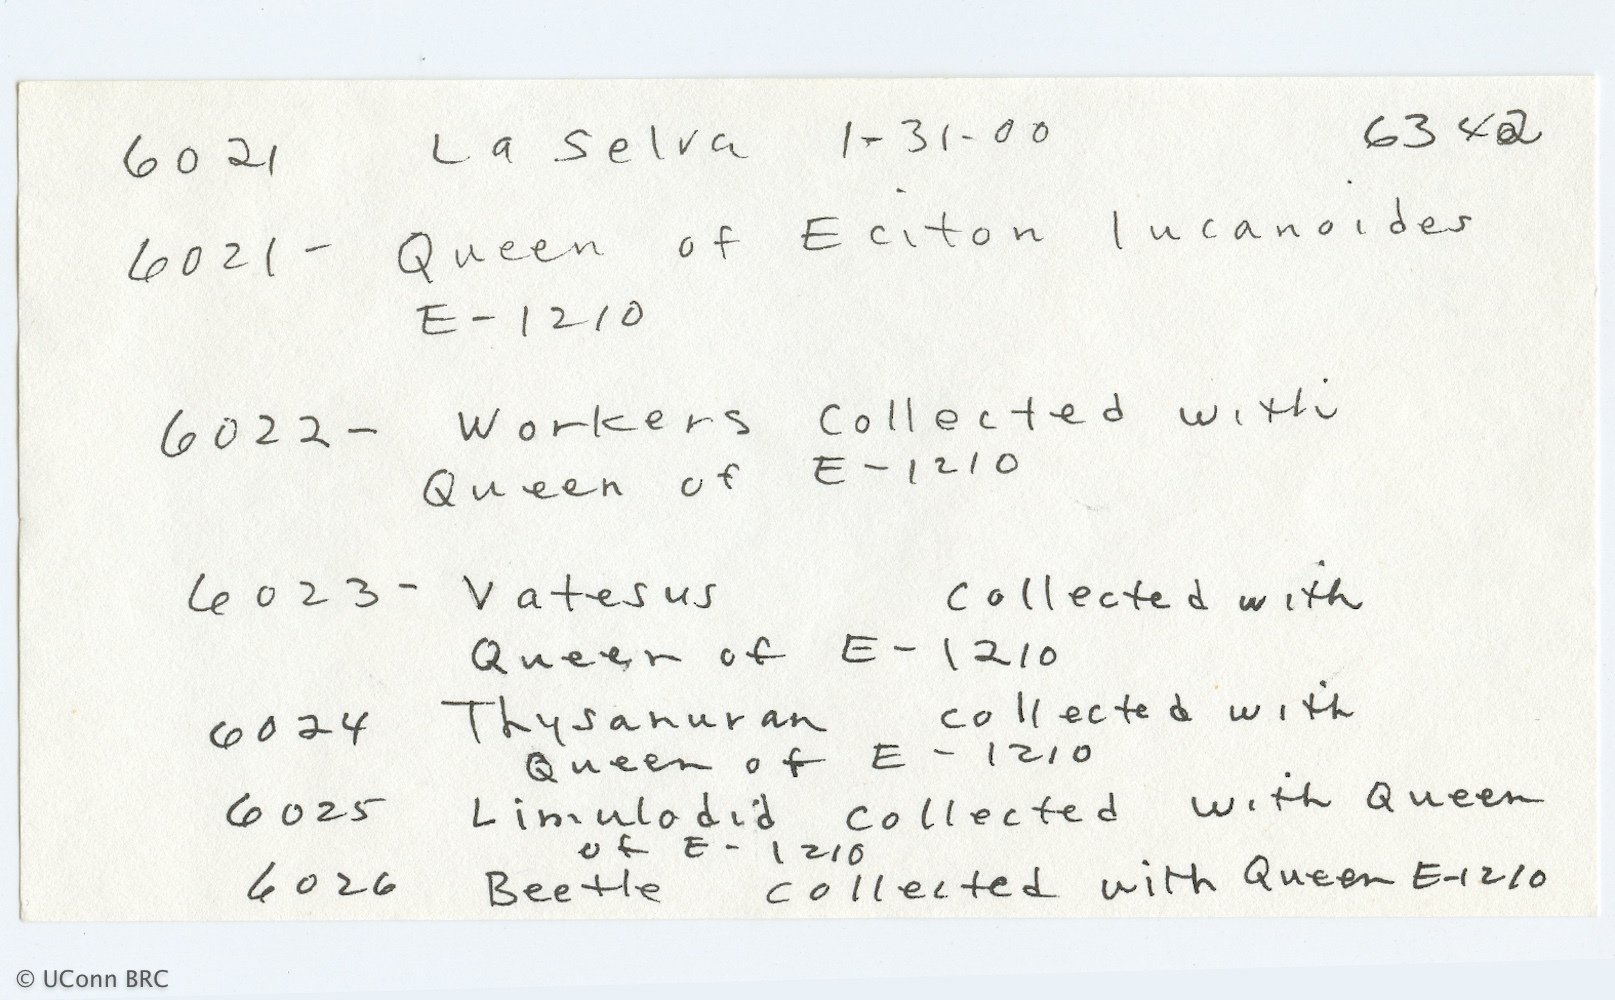 6021 La Selva 1-31-00 6342
6021- Queen of Eciton lucanoides
E-1210
6022- Workers Collected with
Queen of E-1210
6023- Vatesus collected with
Queen of E-1210
6024 Thysanuran collected with
Queen of E-1210
6025 Limulodid collected with Queen
of E-1210
6026 Beetle collected with Queen E-1210
© UConn BRC